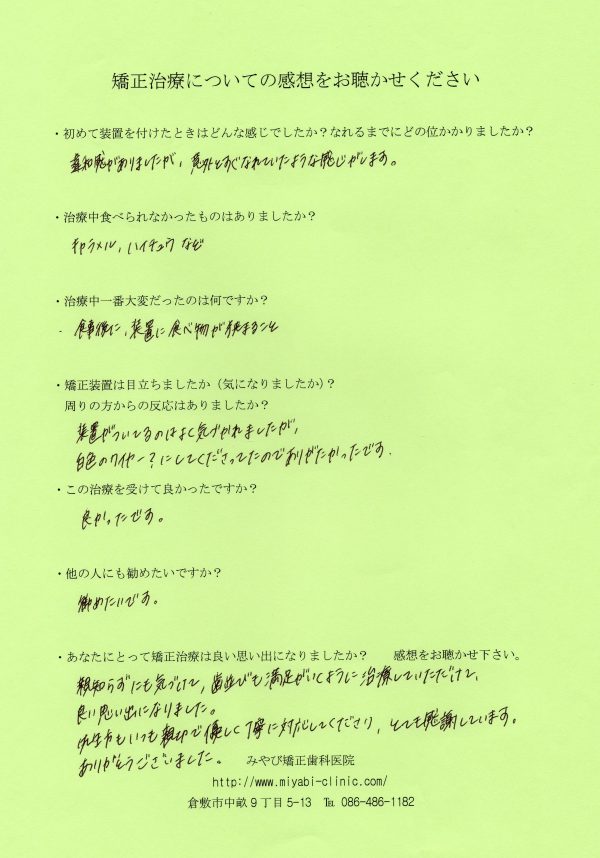 矯正治療についての感想をお聴かせください
・初めて装置を付けたときはどんな感じでしたか？なれるまでにどの位かかりましたか？
違和感がありましたが、意外とすぐなれていたような感じがします。
・治療中食べられなかったものはありましたか？
キャラメル、ハイチュウ など
・治療中一番大変だったのは何ですか？
- 食事後に、装置に食べ物が挟まること
・矯正装置は目立ちましたか（気になりましたか）？
周りの方からの反応はありましたか？
装置がついてるのはよく気づかれましたが、
白色のワイヤー？にしてくださってたのでありがたかったです.
・この治療を受けて良かったですか？
良かったです。
・他の人にも勧めたいですか？
勧めたいです。
・あなたにとって矯正治療は良い思い出になりましたか？　感想をお聴かせ下さい。
親知らずにも気づけて、歯並びも満足がいくように治療していただけて、
良い思い出になりました。
先生方もいつも親切で優しく丁寧に対応してくださり、とても感謝しています。
ありがとうございました。　みやび矯正歯科医院
http://www.miyabi-clinic.com/
倉敷市中畝９丁目5-13　℡ 086-486-1182